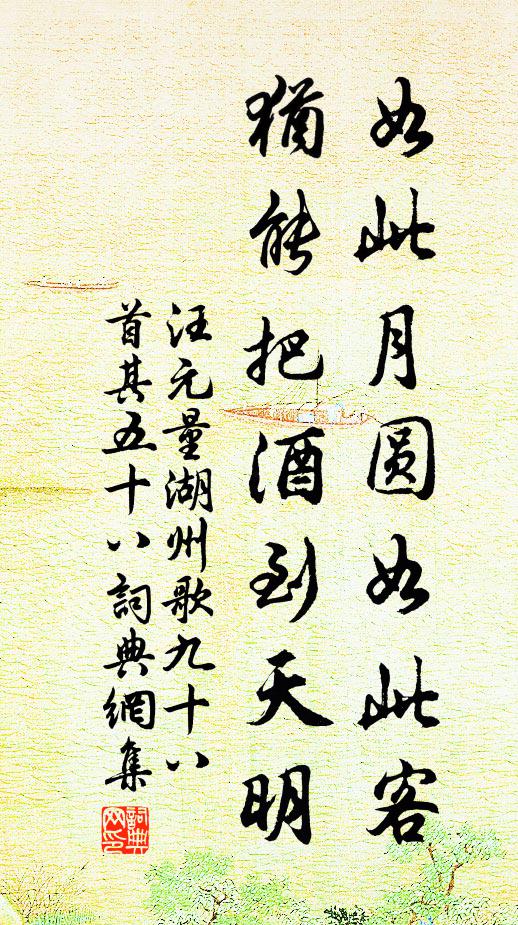 如此月圆如此客
猶能把酒到天明
汪元量湖州歌九十八
首其五十八詞典網集
詞典
网印